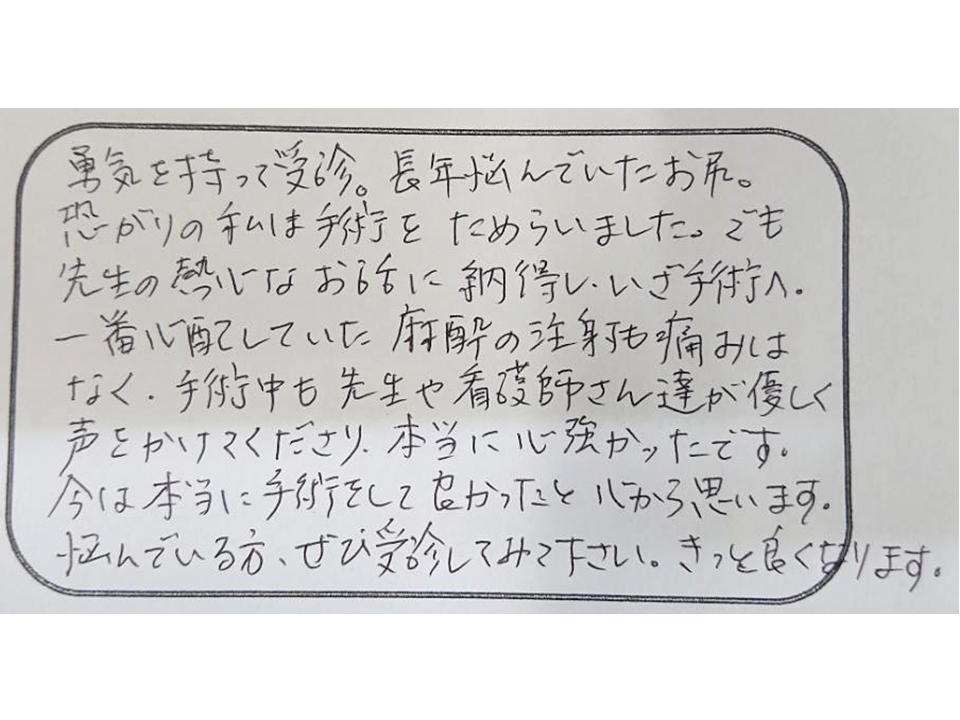 勇気を持って受診。長年悩んでいたお尻。
恐がりの私は手術をためらいました。でも
先生の熱心なお話に納得し、いざ手術へ。
一番心配していた麻酔の注射も痛みは
なく、手術中も先生や看護師さん達が優しく
声をかけてくださり、本当に心強かったです。
今は本当に手術をして良かったと心から思います。
悩んでいる方、ぜひ受診してみて下さい。きっと良くなります。